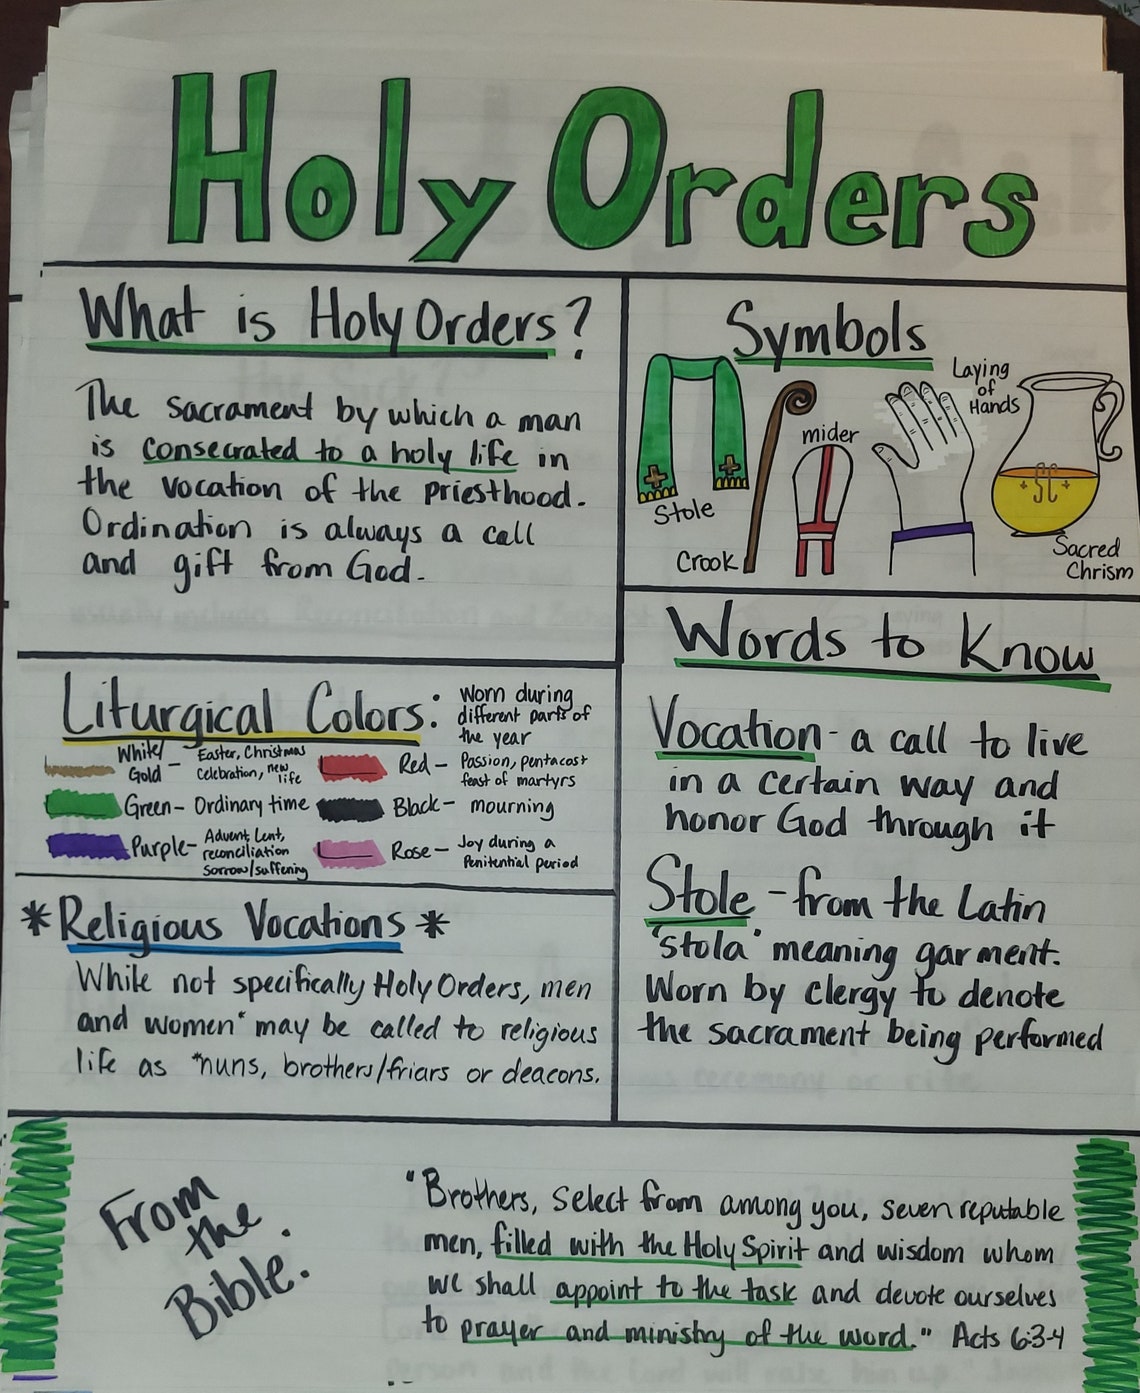 Holy Orders
What is Holy Orders?
The sacrament by which a man
is consecrated to a holy life in
the vocation of the priesthood.
Ordination is always a call
and gift from God.
Symbols
Stole
Crook
mider
Laying
of
Hands
Sacred
Chrism
Liturgical Colors:
Worn during
different parts of
the year
White/
Gold -
Easter, Christmas
Celebration, new
life
Green - Ordinary time
Purple -
Advent, Lent,
reconciliation
Sorrow/suffering
Red -
Passion, pentacost
feast of martyrs
Black - mourning
Rose -
Joy during a
Penitential period
*Religious Vocations*
While not specifically Holy Orders, men
and women* may be called to religious
life as *nuns, brothers/friars or deacons.
Words to Know
Vocation - a call to live
in a certain way and
honor God through it
Stole - from the Latin
'stola' meaning garment.
Worn by clergy to denote
the sacrament being performed
From
the
Bible:
"Brothers, select from among you, seven reputable
men, filled with the Holy Spirit and wisdom whom
we shall appoint to the task and devote ourselves
to prayer and ministry of the word." Acts 6:3-4